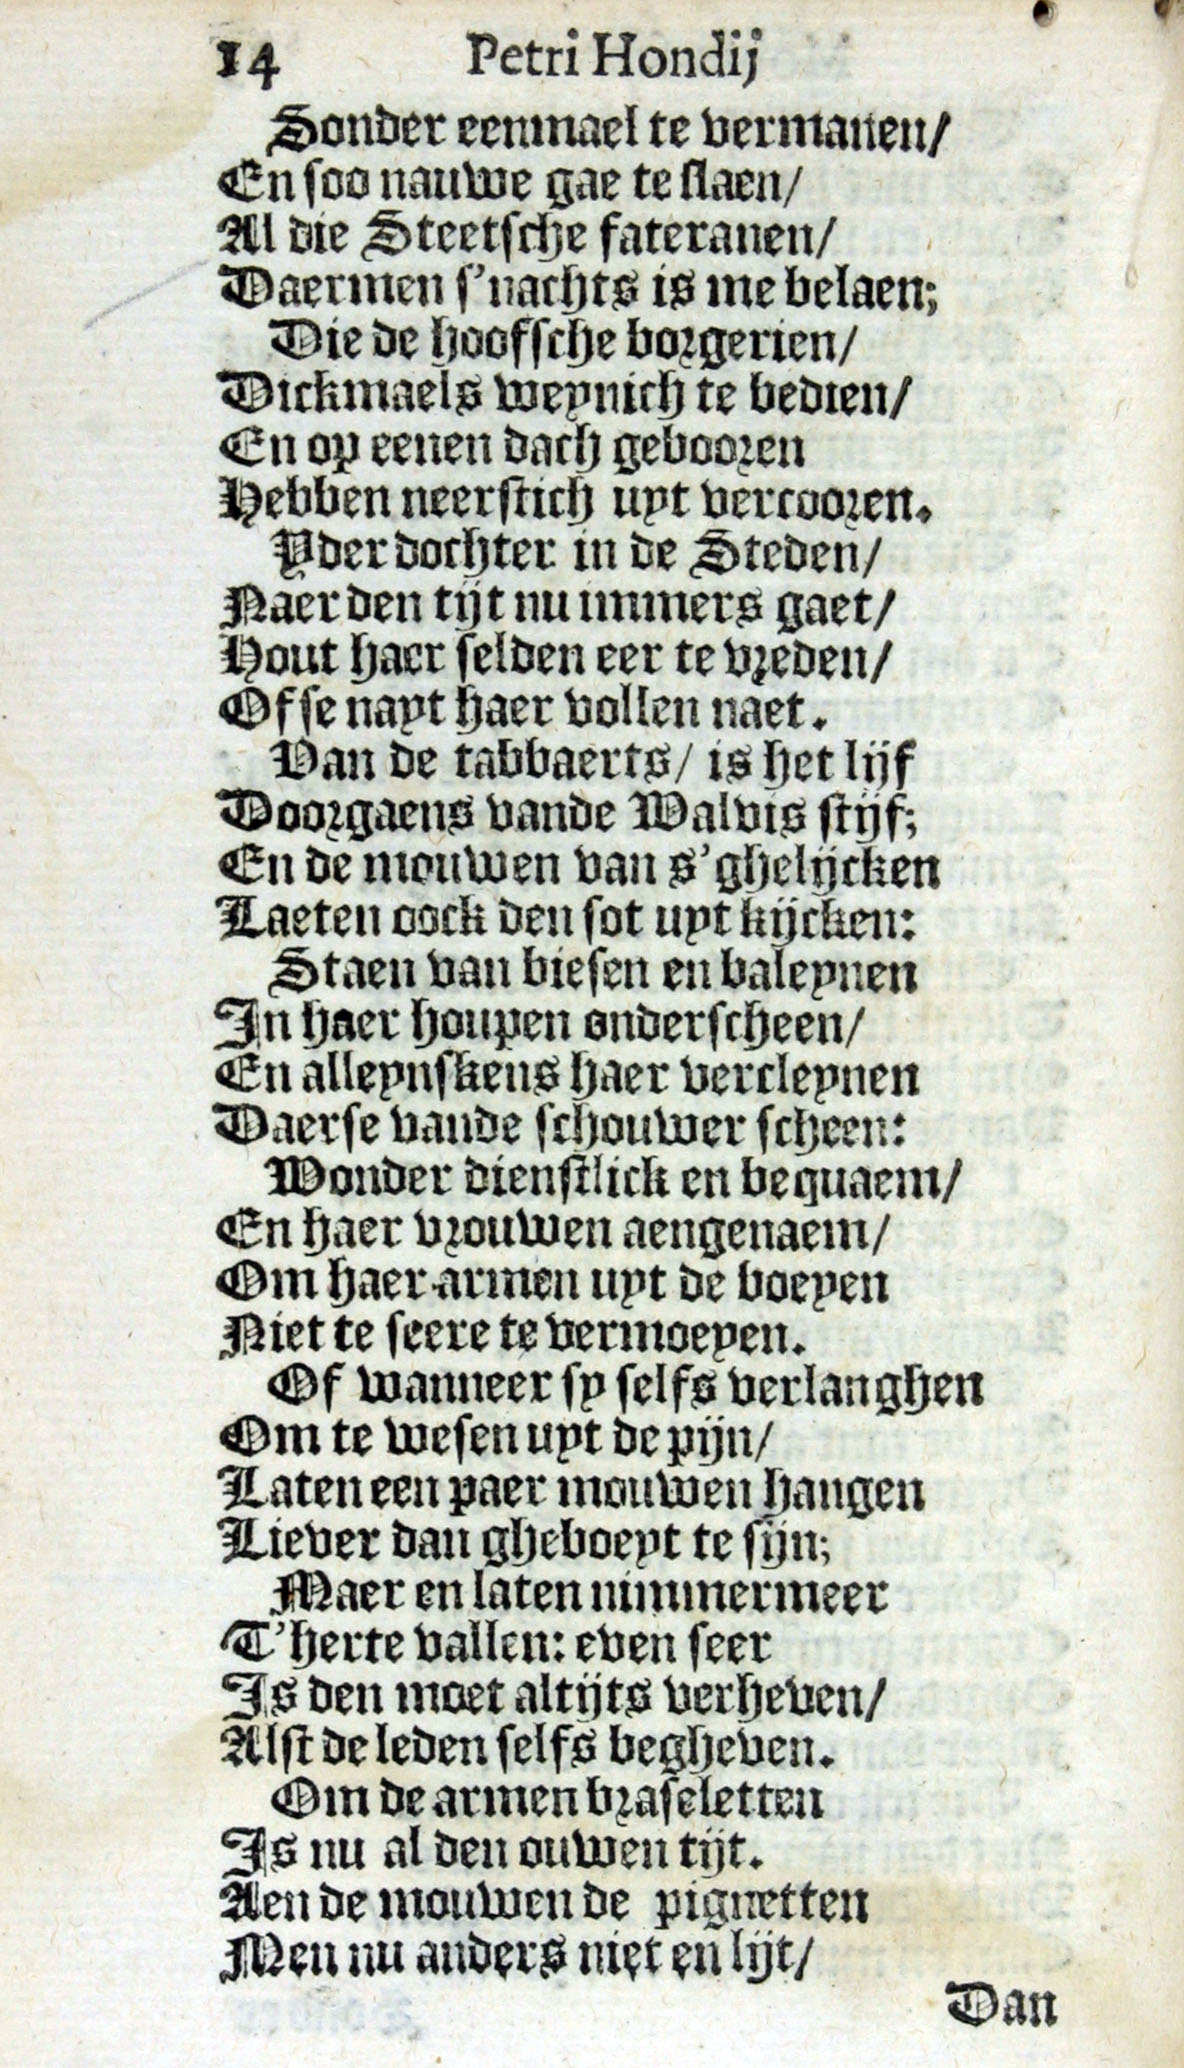 14 Petri Hondij
Sonder eenmael te vermanen/
En soo nauwe gae te slaen/
Al die Steetsche fateranen/
Daermen s'nachts is me belaen;
Die de hoofsche borgerien/
Dickmaels weynich te bedien/
En op eenen dach gebooren
Hebben neerstich uyt vercooren.
Yder dochter in de Steden/
Naer den tijt nu immers gaet/
Hout haer selden eer te vreden/
Of se nayt haer vollen naet.
Van de tabbaerts/ is het lijf
Doorgaens vande Walvis stijf;
En de mouwen van s'ghelijcken
Laeten oock den sot uyt kijcken:
Staen van biesen en baleynen
In haer houpen onderscheen/
En alleynskens haer vercleynen
Daerse vande schouwer scheen:
Wonder dienstlick en bequaem/
En haer vrouwen aengenaem/
Om haer armen uyt de boeyen
Niet te seere te vermoeyen.
Of wanneer sy selfs verlanghen
Om te wesen uyt de pijn/
Laten een paer mouwen hangen
Liever dan gheboeyt te sijn;
Maer en laten nimmermeer
T'herte vallen: even seer
Is den moet altijts verheven/
Alst de leden selfs begheven.
Om de armen braseletten
Is nu al den ouwen tijt.
Aen de mouwen de pignetten
Men nu anders niet en lijt/
Dan